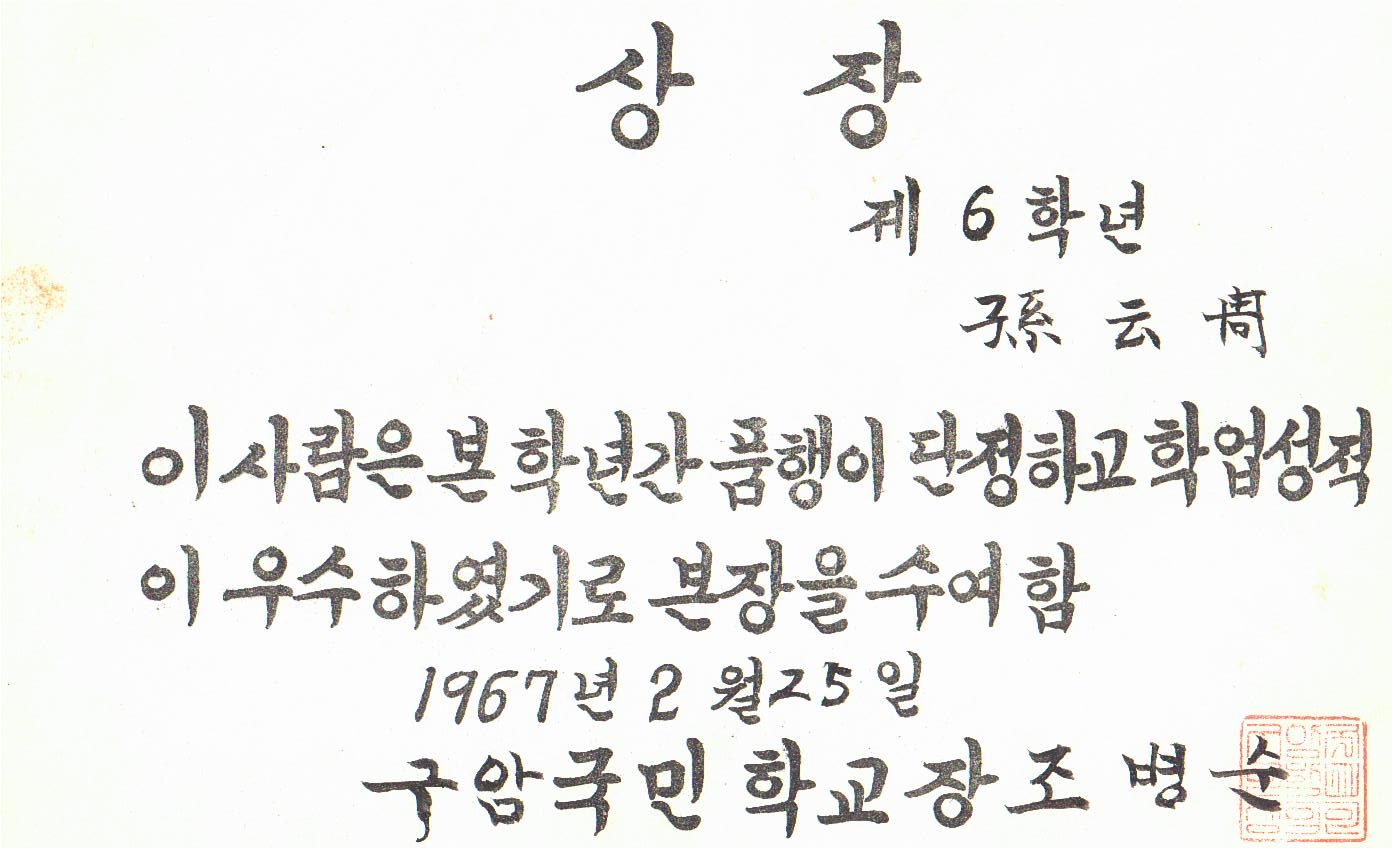 상 장
제 6 학년
孫 云 周
이 사람은 본 학년간 품행이 단정하고 학업성적
이 우수하였기로 본장을 수여함
1967년 2월 25일
구암국민학교장 조 병 순